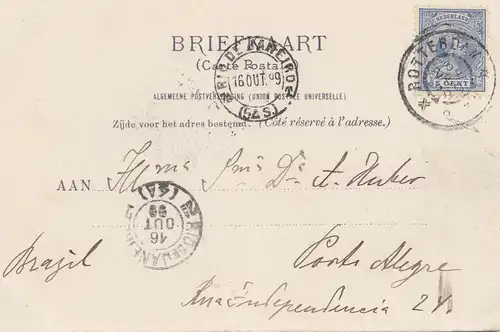 NEDERLAND
5 CENT
ROTTERDAM
BRIEFKAART
(Carte Postale)
RIO DE JANEIRO
16 OUT 99
(5ª S)
ALGEMEENE POSTVEREENIGING (UNION POSTALE UNIVERSELLE)
Zijde voor het adres bestemd. (Côté réservé à l'adresse.)
AAN Exmo Snr. Dr. A. Huber
RIO DE JANEIRO
16
OUT
99
Brazil
Porto Alegre
Rua Independencia 24.